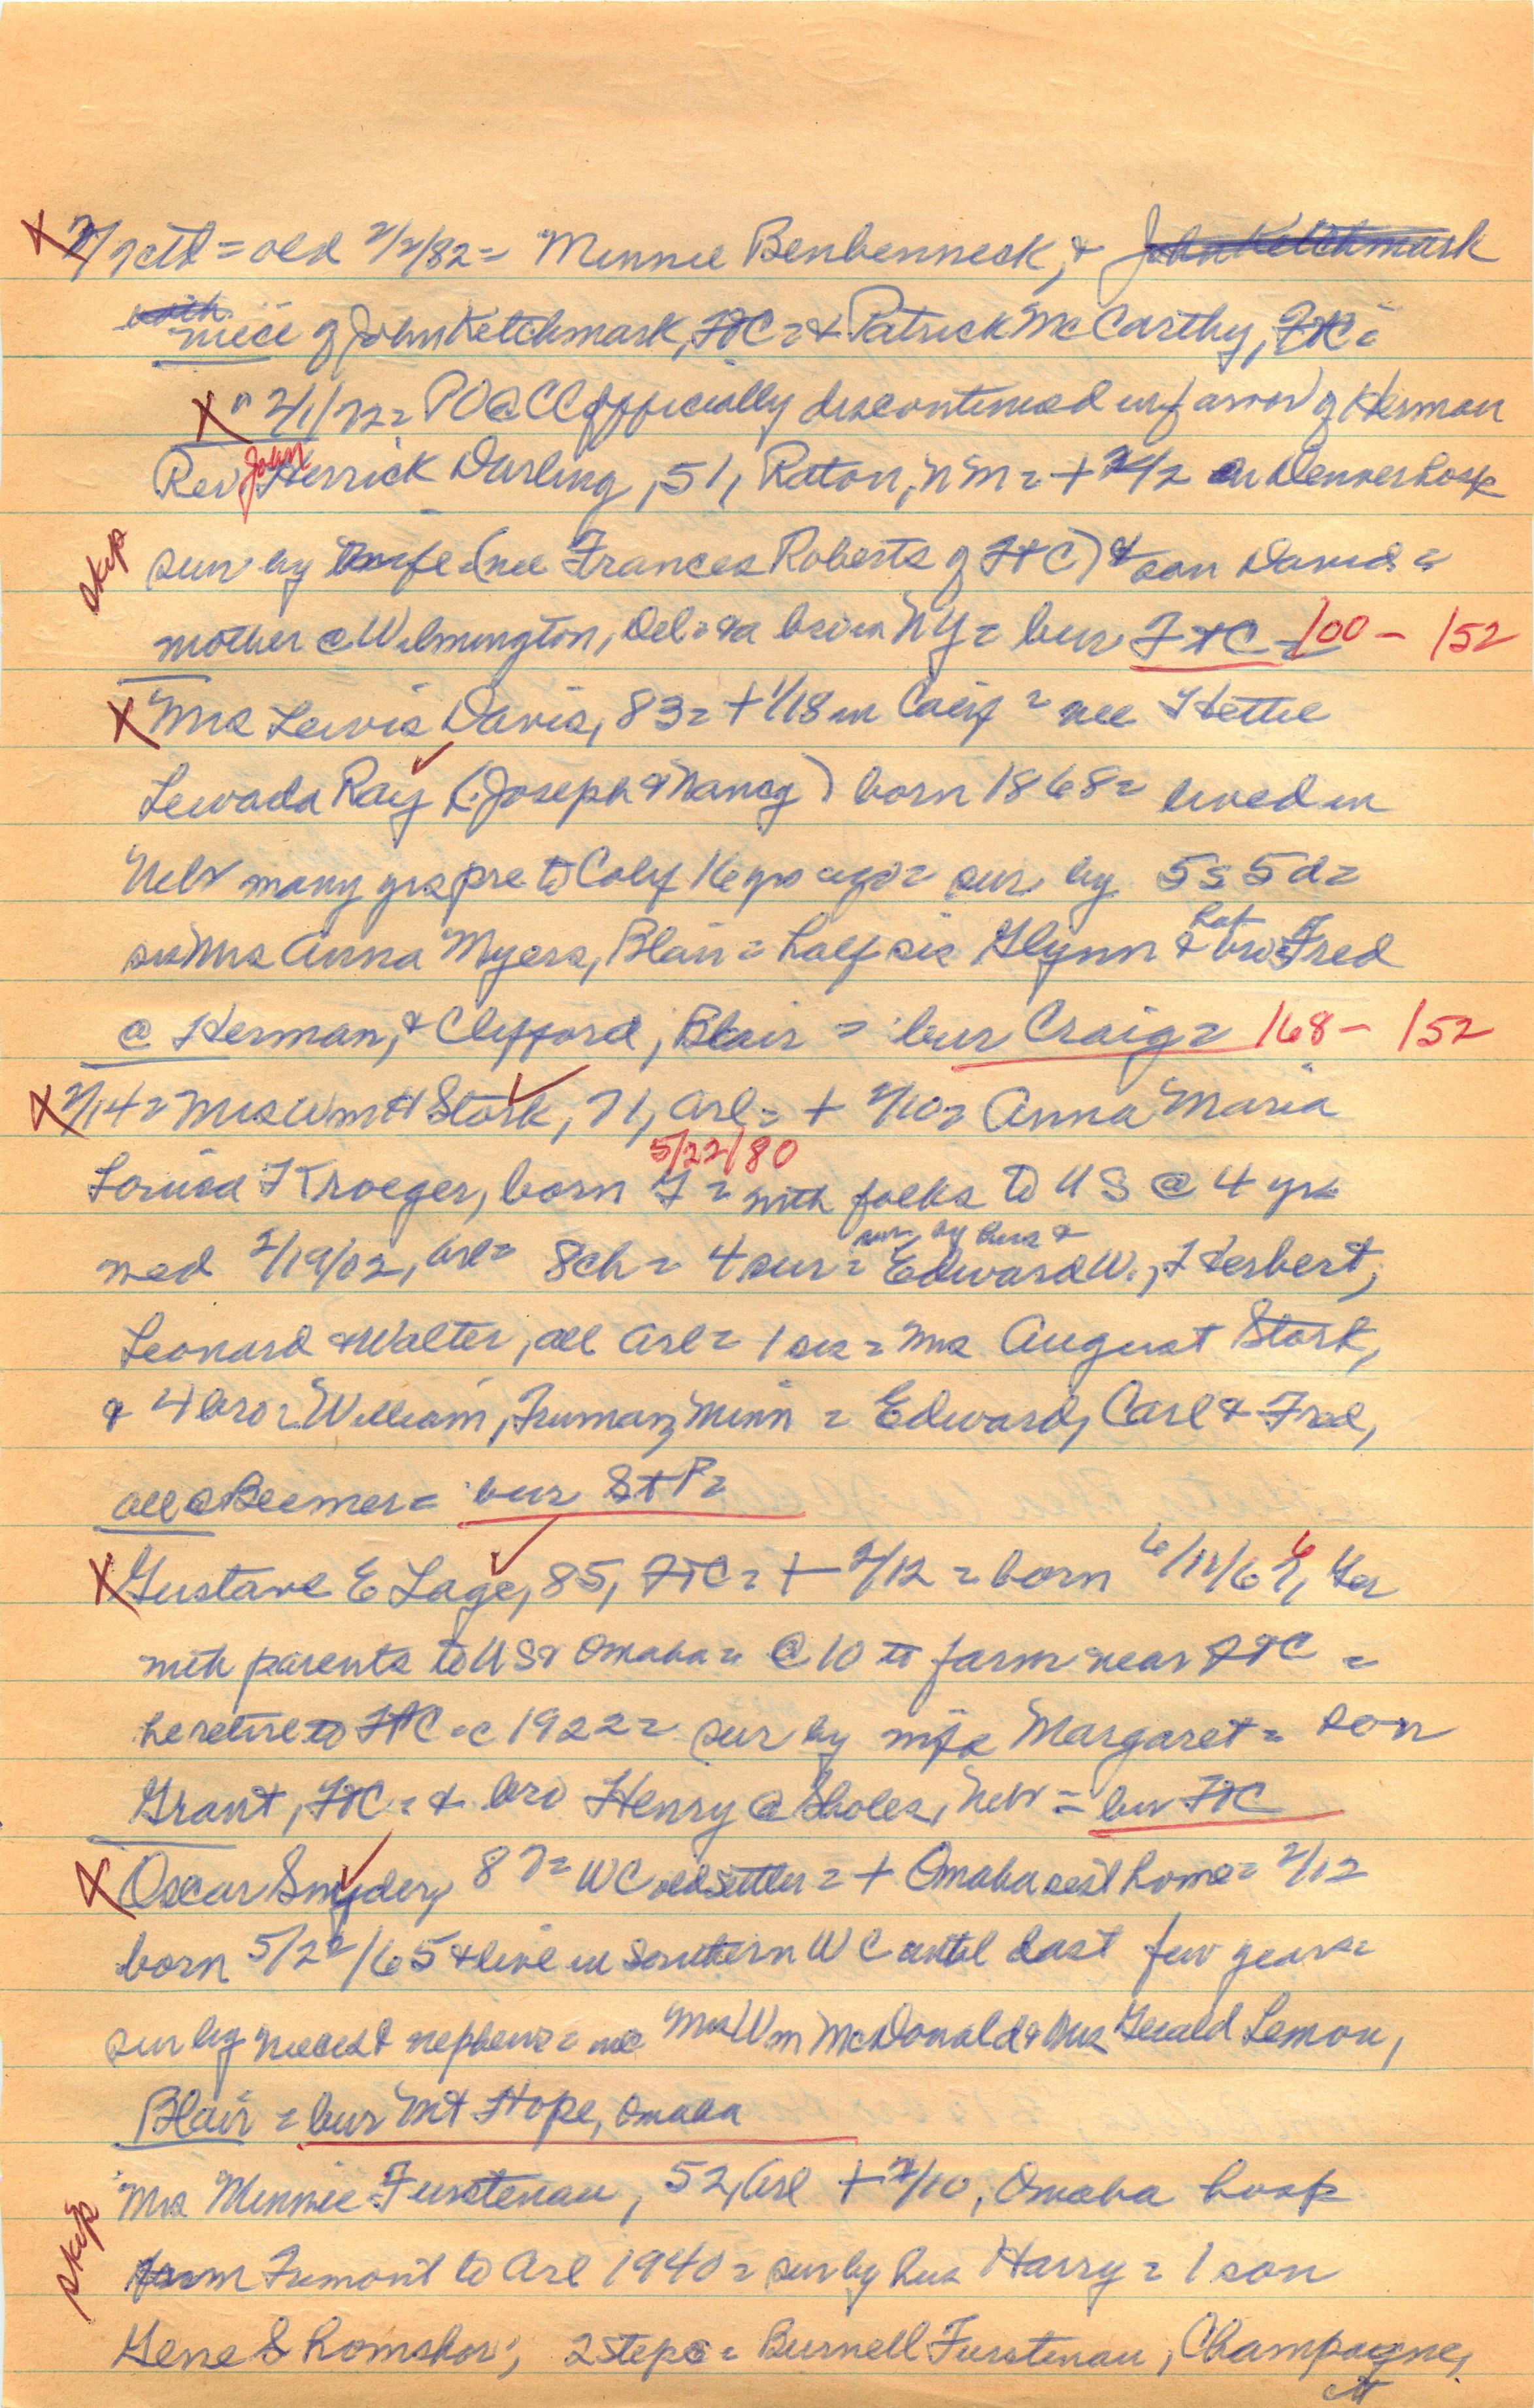 X 2/7 ctd = old 2/2/82 = Minnie Benbenneck, & John Ketchmark
with niece of John Ketchmark, FtC = & Patrick McCarthy, FtC =
X " 2/1/72 = PO @ CC officially discontinued in favor of Herman
Rev. John Herrick Darling, 51, Raton, NM = + 2/2 in Denver hosp
skip sur by wife (nee Frances Roberts of FtC) & son David =
mother @ Wilmington, Del = & a bro in NY = bur FtC = 100 - 152
X Mrs Lewis Davis, 83 = + 1/18 in Calif = nee Hettie
Lewada Ray (Joseph & Nancy) born 1868 = lived in
Nebr many yrs pre to Calif 16 yrs ago = sur by 5s 5d =
sis Mrs Anna Myers, Blair = half sis Glynn & haf bro = Fred
@ Herman, & Clifford, Blair = bur Craig = 168 - 152
X 2/14 = Mrs Wm H Stork, 71, Arl = + 2/10 = Anna Maria
5/22/80
Louisa Kroeger, born G = with folks to US @ 4 yrs
sur by hus &
med 2/19/02, Arl = 8ch = 4 sur = Edward W., Herbert,
Leonard & Walter, all Arl = 1 sis = Mrs August Stork,
& 4 bro = William, Truman, Minn = Edward, Carl & Fred,
all @ Beemer = bur St P =
X Gustave E Lage, 85, FtC = + 2/12 = born 6/12/66, Ger
with parents to US & Omaha = @ 10 to farm near FtC =
he retire to FtC = c 1922 = sur by wife Margaret = son
Grant, FtC = & bro Henry @ Sholes, Nebr = bur FtC
X Oscar Snyder, 87 = WC old settler = + Omaha rest home = 2/12
born 5/22/65 & live in Southern WC until last few years =
sur by nieces & nephews = Mrs Wm McDonald & Mrs Gerald Lemon,
Blair = bur Mt Hope, Omaha
Mrs Minnie Furstenau, 52, Arl + 2/10, Omaha hosp
skip from Fremont to Arl 1940 = sur by hus Harry = 1 son
Gene Shomshor, 2 steps = Burnell Furstenau, Champagne,